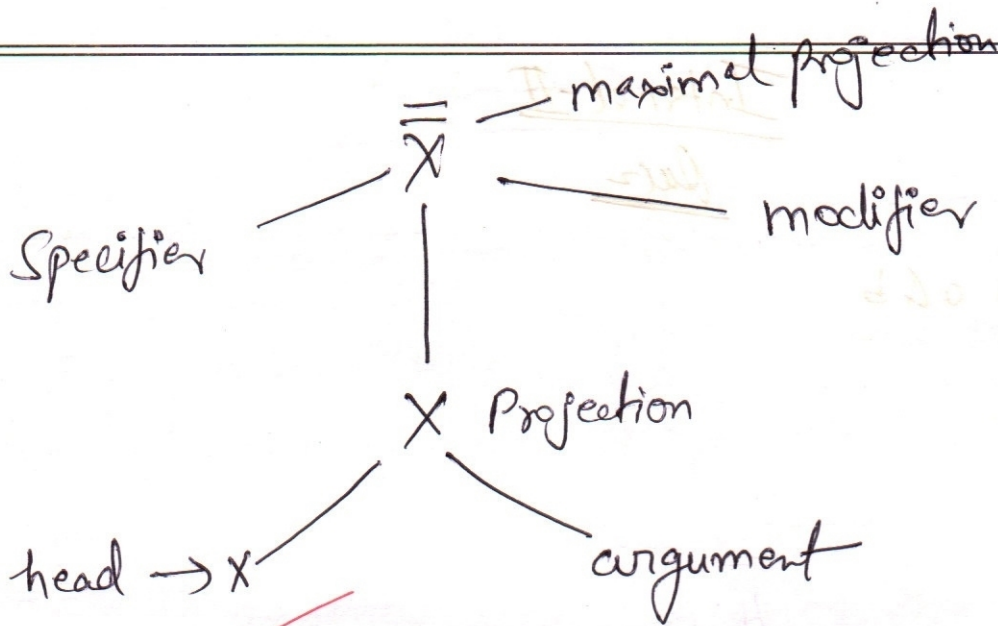 maximal projection
X̿
Specifier
modifier
X Projection
head → X
argument